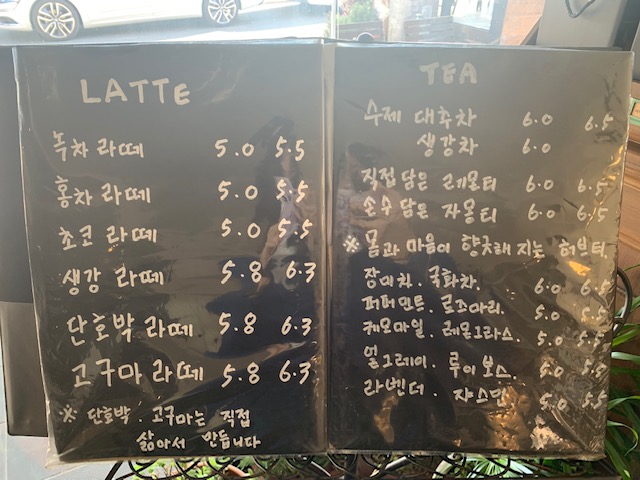 LATTE
녹차 라떼 5.0 5.5
홍차 라떼 5.0 5.5
초코 라떼 5.0 5.5
생강 라떼 5.8 6.3
단호박 라떼 5.8 6.3
고구마 라떼 5.8 6.3
※ 단호박 . 고구마는 직접
삶아서 만듭니다
TEA
수제 대추차 6.0 6.5
생강차 6.0
직접 담은 레몬티 6.0 6.5
손수 담은 자몽티 6.0 6.5
※ 몸과 마음이 향긋해 지는 허브티.
장미차 . 국화차. 6.0 6.5
퍼퍼민트 . 로즈마리. 5.0 5.5
캐모마일 . 레몬그라스. 5.0 5.5
얼그레이 . 루이보스. 5.0 5.5
라벤더 . 쟈스민 5.0 5.5